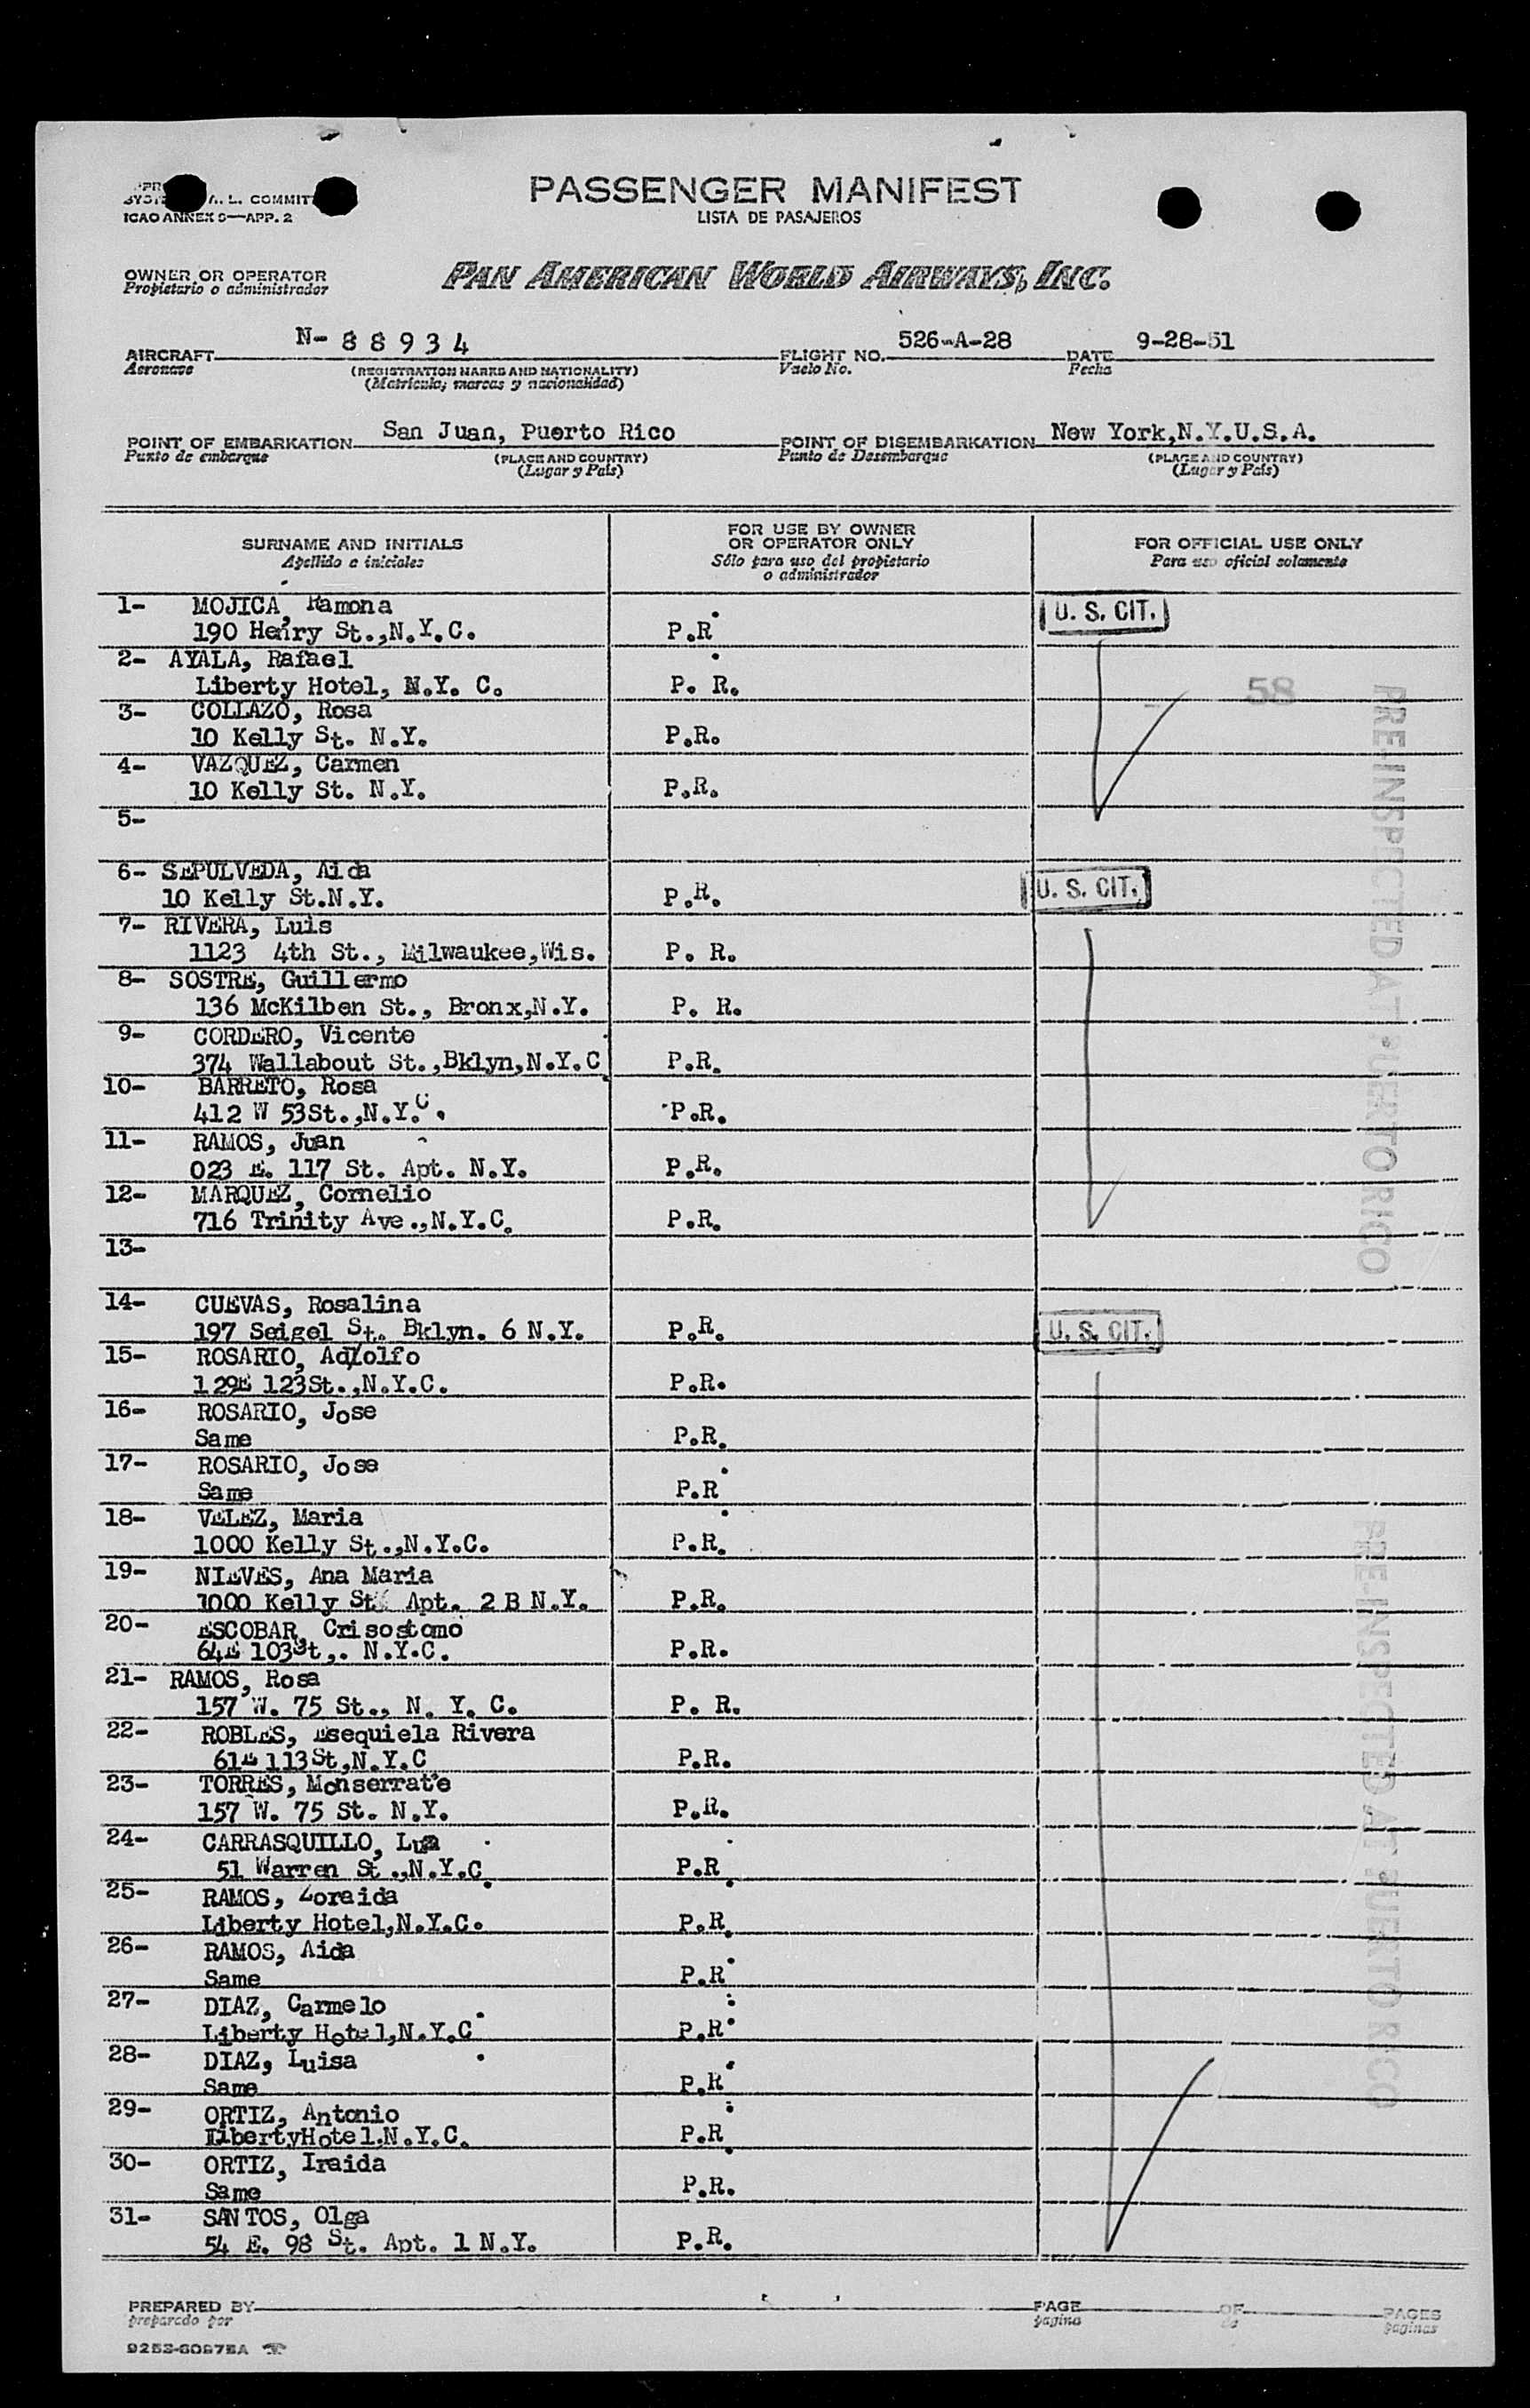 PASSENGER MANIFEST
LISTA DE PASAJEROS
A. L. COMMIT
ICAO ANNEX 9—APP. 2
OWNER OR OPERATOR
Propietario o administrador
PAN AMERICAN WORLD AIRWAYS, INC.
AIRCRAFT N- 88934 FLIGHT NO. 526-A-28 DATE 9-28-51
Aeronave (REGISTRATION MARKS AND NATIONALITY) Vuelo No. Fecha
(Matricula, marcas y nacionalidad)
POINT OF EMBARKATION San Juan, Puerto Rico POINT OF DISEMBARKATION New York,N.Y.U.S.A.
Punto de embarque (PLACE AND COUNTRY) Punto de Desembarque (PLACE AND COUNTRY)
(Lugar y País) (Lugar y País)
SURNAME AND INITIALS
Apellido e iniciales
FOR USE BY OWNER
OR OPERATOR ONLY
Sólo para uso del propietario
o administrador
FOR OFFICIAL USE ONLY
Para uso oficial solamente
1- MOJICA, Ramona U. S. CIT.
190 Henry St.,N.Y.C. P.R.
2- AYALA, Rafael
Liberty Hotel, N.Y. C. P. R. 58
3- COLLAZO, Rosa
10 Kelly St. N.Y. P.R.
4- VAZQUEZ, Carmen
10 Kelly St. N.Y. P.R.
5-
6- SEPULVEDA, Aida U. S. CIT.
10 Kelly St.N.Y. P.R.
7- RIVERA, Luis
1123 4th St., Milwaukee,Wis. P. R.
8- SOSTRE, Guillermo
136 McKilben St., Bronx,N.Y. P. R.
9- CORDERO, Vicente
374 Wallabout St.,Bklyn,N.Y.C. P.R.
10- BARRETO, Rosa
412 W 53St.,N.Y.C. P.R.
11- RAMOS, Juan
023 E. 117 St. Apt. N.Y. P.R.
12- MARQUEZ, Cornelio
716 Trinity Ave.,N.Y.C. P.R.
13-
14- CUEVAS, Rosalina
197 Seigel St. Bklyn. 6 N.Y. P.R. U. S. CIT.
15- ROSARIO, Adolfo
129E 123St.,N.Y.C. P.R.
16- ROSARIO, Jose
Same P.R.
17- ROSARIO, Jose
Same P.R.
18- VELEZ, Maria
1000 Kelly St.,N.Y.C. P.R.
19- NIEVES, Ana Maria
1000 Kelly St. Apt. 2 B N.Y. P.R.
20- ESCOBAR, Crisostomo
64E 103St,. N.Y.C. P.R.
21- RAMOS, Rosa
157 W. 75 St., N. Y. C. P. R.
22- ROBLES, Esequiela Rivera
61E 113St,N.Y.C P.R.
23- TORRES, Monserrate
157 W. 75 St. N.Y. P.R.
24- CARRASQUILLO,
51 Warren St.,N.Y.C. P.R.
25- RAMOS, Zoraida
Liberty Hotel,N.Y.C. P.R.
26- RAMOS, Aida
Same P.R.
27- DIAZ, Carmelo
Liberty Hotel,N.Y.C. P.R.
28- DIAZ, Luisa
Same P.R.
29- ORTIZ, Antonio
LibertyHotel.N.Y.C. P.R.
30- ORTIZ, Iraida
Same P.R.
31- SANTOS, Olga
54 E. 98 St. Apt. 1 N.Y. P.R.
PRE-INSPECTED AT PUERTO RICO
PRE-INSPECTED AT PUERTO RICO
PREPARED BY PAGE OF PAGES
preparado por pagina de paginas